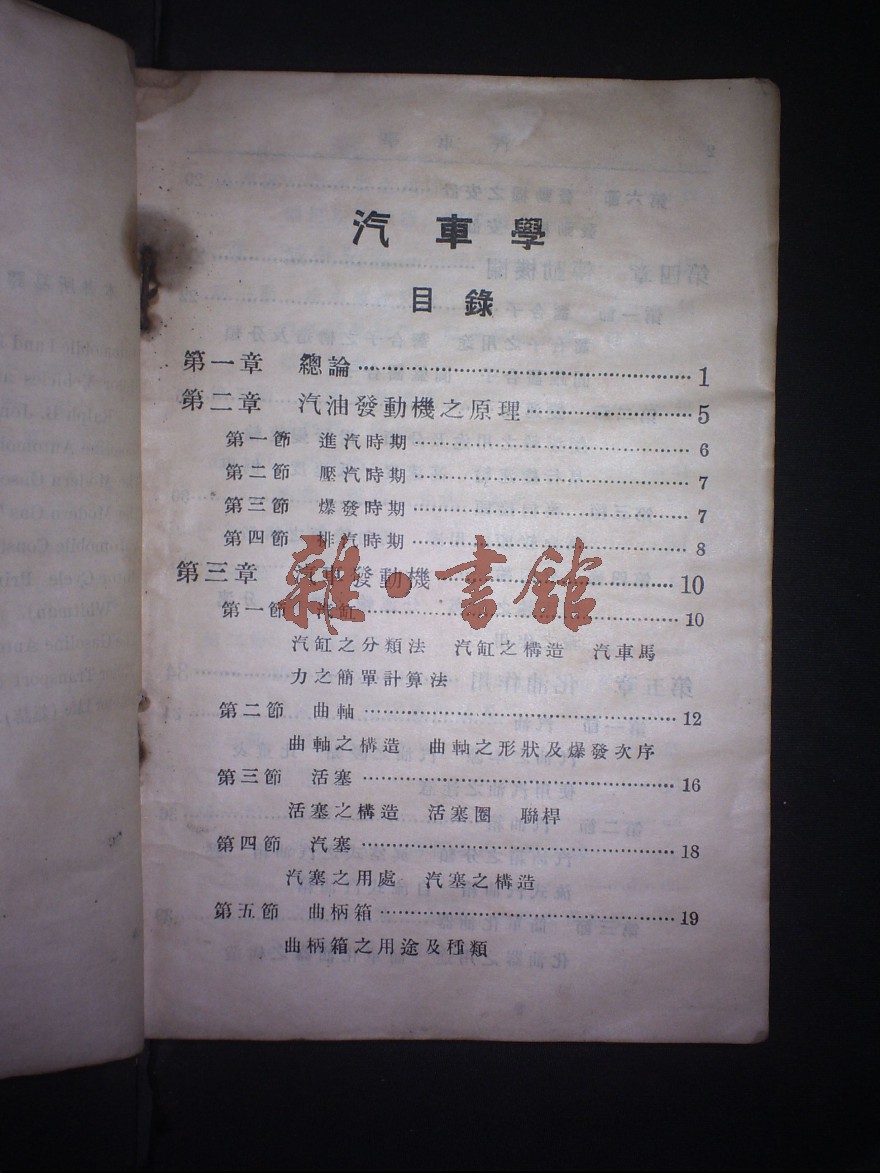 汽車學
目錄
第一章 總論……1
第二章 汽油發動機之原理……5
第一節 進汽時期……6
第二節 壓汽時期……7
第三節 爆發時期……7
第四節 排汽時期……8
第三章 汽車發動機……10
第一節 汽缸……10
汽缸之分類法 汽缸之構造 汽車馬
力之簡單計算法
第二節 曲軸……12
曲軸之構造 曲軸之形狀及爆發次序
第三節 活塞……16
活塞之構造 活塞圈 聯桿
第四節 汽塞……18
汽塞之用處 汽塞之構造
第五節 曲柄箱……19
曲柄箱之用途及種類
雜·書館